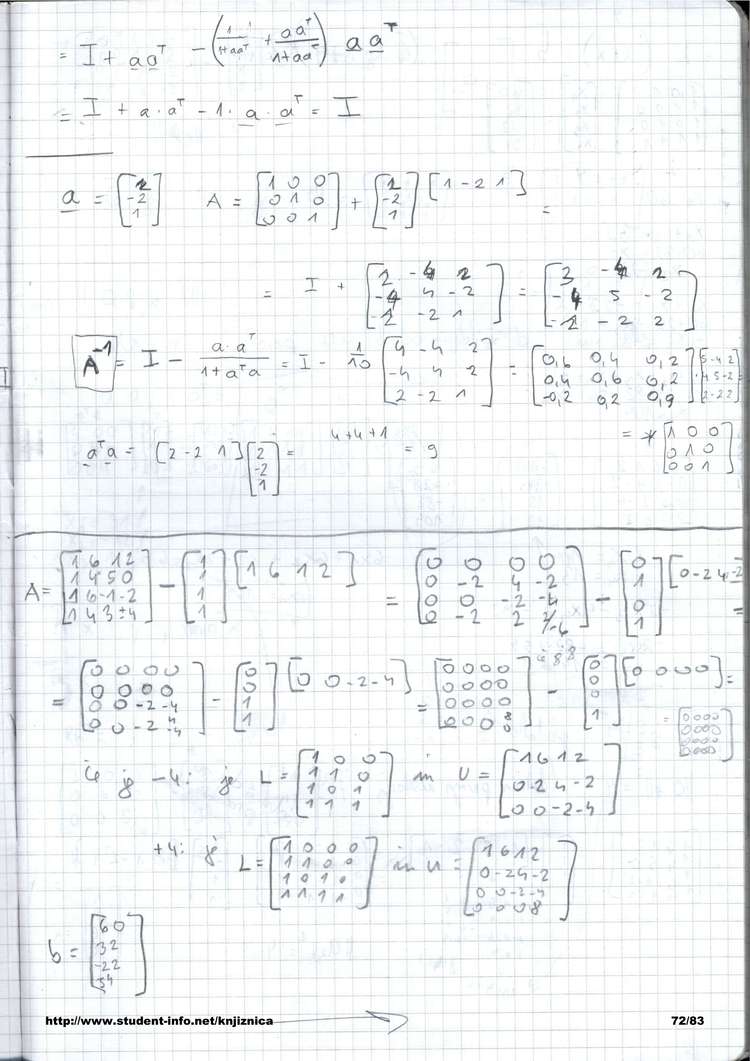 = I + a aᵀ − (1/(1+aaᵀ) + aaᵀ/(1+aaᵀ)) a aᵀ
= I + a · aᵀ − 1 · a · aᵀ = I
a = [2; -2; 1] A = [1 0 0; 0 1 0; 0 0 1] + [2; -2; 1] [1 -2 1] =
= I + [2 -4 2; -4 4 -2; -2 -2 1] = [3 -4 2; -4 5 -2; -2 -2 2]
A⁻¹ = I − a·aᵀ/(1+aᵀa) = I − 1/10 [4 -4 2; -4 4 2; 2 -2 1] = [0,6 0,4 0,2; 0,4 0,6 0,2; -0,2 0,2 0,9] · [5 -4 2; 4 5 -2; 2 -2 2]
aᵀa = [2 -2 1] [2; -2; 1] = 4+4+1 = 9
= * [1 0 0; 0 1 0; 0 0 1]
A = [1 6 1 2; 1 4 5 0; 1 6 -1 -2; 1 4 3 ±4] − [1; 1; 1; 1] [1 6 1 2] = [0 0 0 0; 0 -2 4 -2; 0 0 -2 -4; 0 -2 2 2/-6] − [0; 1; 0; 1] [0 -2 4 -2] =
= [0 0 0 0; 0 0 0 0; 0 0 -2 -4; 0 0 -2 4/-4] − [0; 0; 1; 1] [0 0 -2 -4] = [0 0 0 0; 0 0 0 0; 0 0 0 0; 0 0 0 8/0] − [0; 0; 0; 1] [0 0 0 0] =
= [0 0 0 0; 0 0 0 0; 0 0 0 0; 0 0 0 0]
če je -4: je L = [1 0 0; 1 1 0; 1 0 1; 1 1 1] in U = [1 6 1 2; 0 -2 4 -2; 0 0 -2 -4]
+4: je L = [1 0 0 0; 1 1 0 0; 1 0 1 0; 1 1 1 1] in U = [1 6 1 2; 0 -2 4 -2; 0 0 -2 -4; 0 0 0 8]
b = [60; 32; -22; 54]
http://www.student-info.net/knjiznica 72/83